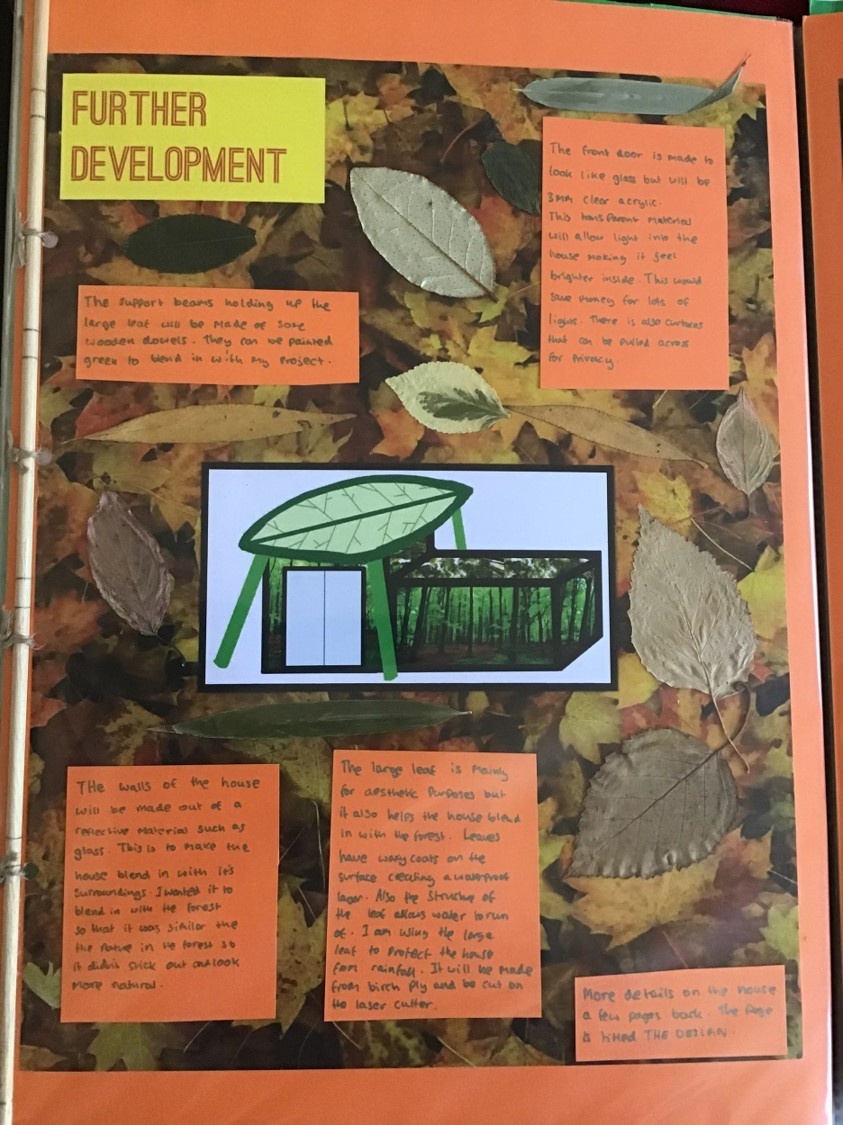 FURTHER
DEVELOPMENT
The front door is made to
look like glass but will be
3MM clear acrylic.
This transparent material
will allow light into the
house making it feel
brighter inside. This would
save money for lots of
lights. There is also curtains
that can be pulled across
for privacy.
The support beams holding up the
large leaf will be made of some
wooden dowels. They can be painted
green to blend in with my project.
THe walls of the house
will be made out of a
reflective material such as
glass. This is to make the
house blend in with it's
surroundings. I wanted it to
blend in with the forest
so that it was similar the
the nature in the forest so
it didn't stick out and look
more natural.
The large leaf is mainly
for aesthetic purposes but
it also helps the house blend
in with the forest. Leaves
have waxy coats on the
surface creating a waterproof
layer. Also the structure of
the leaf allows water to run
of. I am using the large
leaf to protect the house
from rainfall. It will be made
from birch ply and be cut on
the laser cutter.
More details on the house
a few pages back. The page
is THE DESIGN.